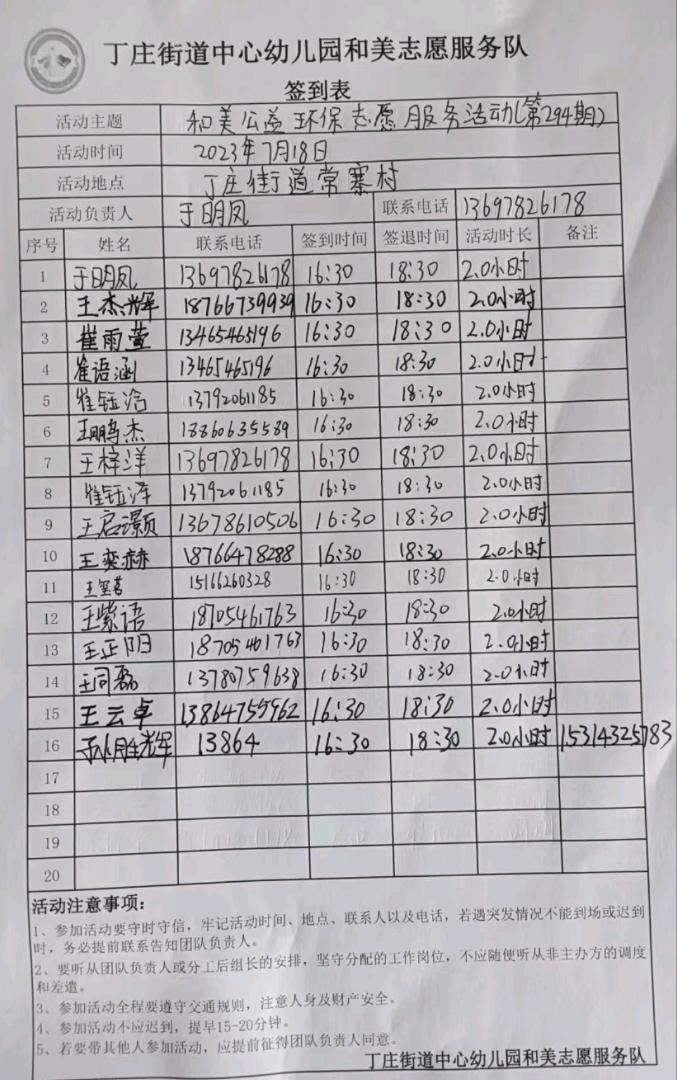 丁庄街道中心幼儿园和美志愿服务队
签到表
活动主题 和美公益环保志愿服务活动(第294期)
活动时间 2023年7月18日
活动地点 丁庄街道常寨村
活动负责人 于明凤 联系电话 13697826178
序号 姓名 联系电话 签到时间 签退时间 活动时长 备注
1 于明凤 13697826178 16:30 18:30 2.0小时
2 王杰辉 18766739939 16:30 18:30 2.0小时
3 崔雨萱 13465465196 16:30 18:30 2.0小时
4 崔语涵 13465465196 16:30 18:30 2.0小时
5 崔钰浩 13792061185 16:30 18:30 2.0小时
6 王鹏杰 18860635589 16:30 18:30 2.0小时
7 王梓洋 13697826178 16:30 18:30 2.0小时
8 崔钰泽 13792061185 16:30 18:30 2.0小时
9 王启灏 13678610506 16:30 18:30 2.0小时
10 王奕赫 18766478288 16:30 18:30 2.0小时
11 15166260328 16:30 18:30 2.0小时
12 王紫语 18705461763 16:30 18:30 2.0小时
13 王正阳 18705461763 16:30 18:30 2.0小时
14 王同磊 13780759638 16:30 18:30 2.0小时
15 王云卓 13864755962 16:30 18:30 2.0小时
16 13864 16:30 18:30 2.0小时 15314325783
17
18
19
20
活动注意事项:
1、参加活动要守时守信，牢记活动时间、地点、联系人以及电话，若遇突发情况不能到场或迟到
时，务必提前联系告知团队负责人。
2、要听从团队负责人或分工后组长的安排，坚守分配的工作岗位，不应随便听从非主办方的调度
和差遣。
3、参加活动全程要遵守交通规则，注意人身及财产安全。
4、参加活动不应迟到，提早15-20分钟。
5、若要带其他人参加活动，应提前征得团队负责人同意。
丁庄街道中心幼儿园和美志愿服务队